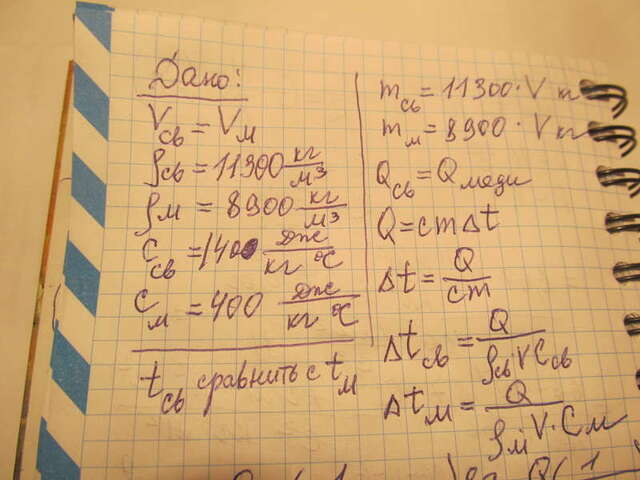 Дано:
Vсв = Vм
ρсв = 11300 кг/м³
ρм = 8900 кг/м³
Cсв = 140 Дж/кг °C
Cм = 400 Дж/кг °C
tсв сравнить с tм
mсв = 11300 · V кг
mм = 8900 · V кг
Qсв = Qмеди
Q = cmΔt
Δt = Q/cm
Δtсв = Q/ρсвVCсв
Δtм = Q/ρмV·Cм